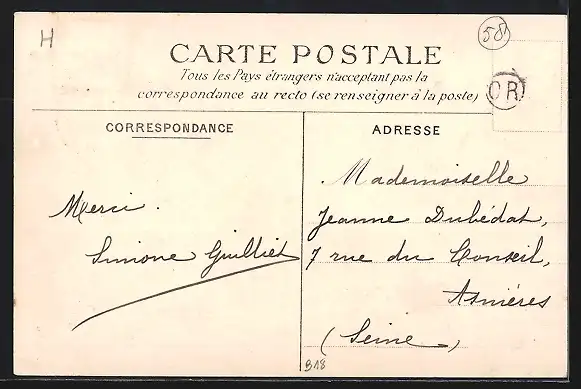 H
58
CARTE POSTALE
Tous les Pays étrangers n'acceptant pas la
correspondance au recto (se renseigner à la poste)
OR
CORRESPONDANCE
ADRESSE
Merci.
Simone Guilliet
Mademoiselle
Jeanne Dubédat,
7 rue du Conseil,
Asnières
(Seine)
B18